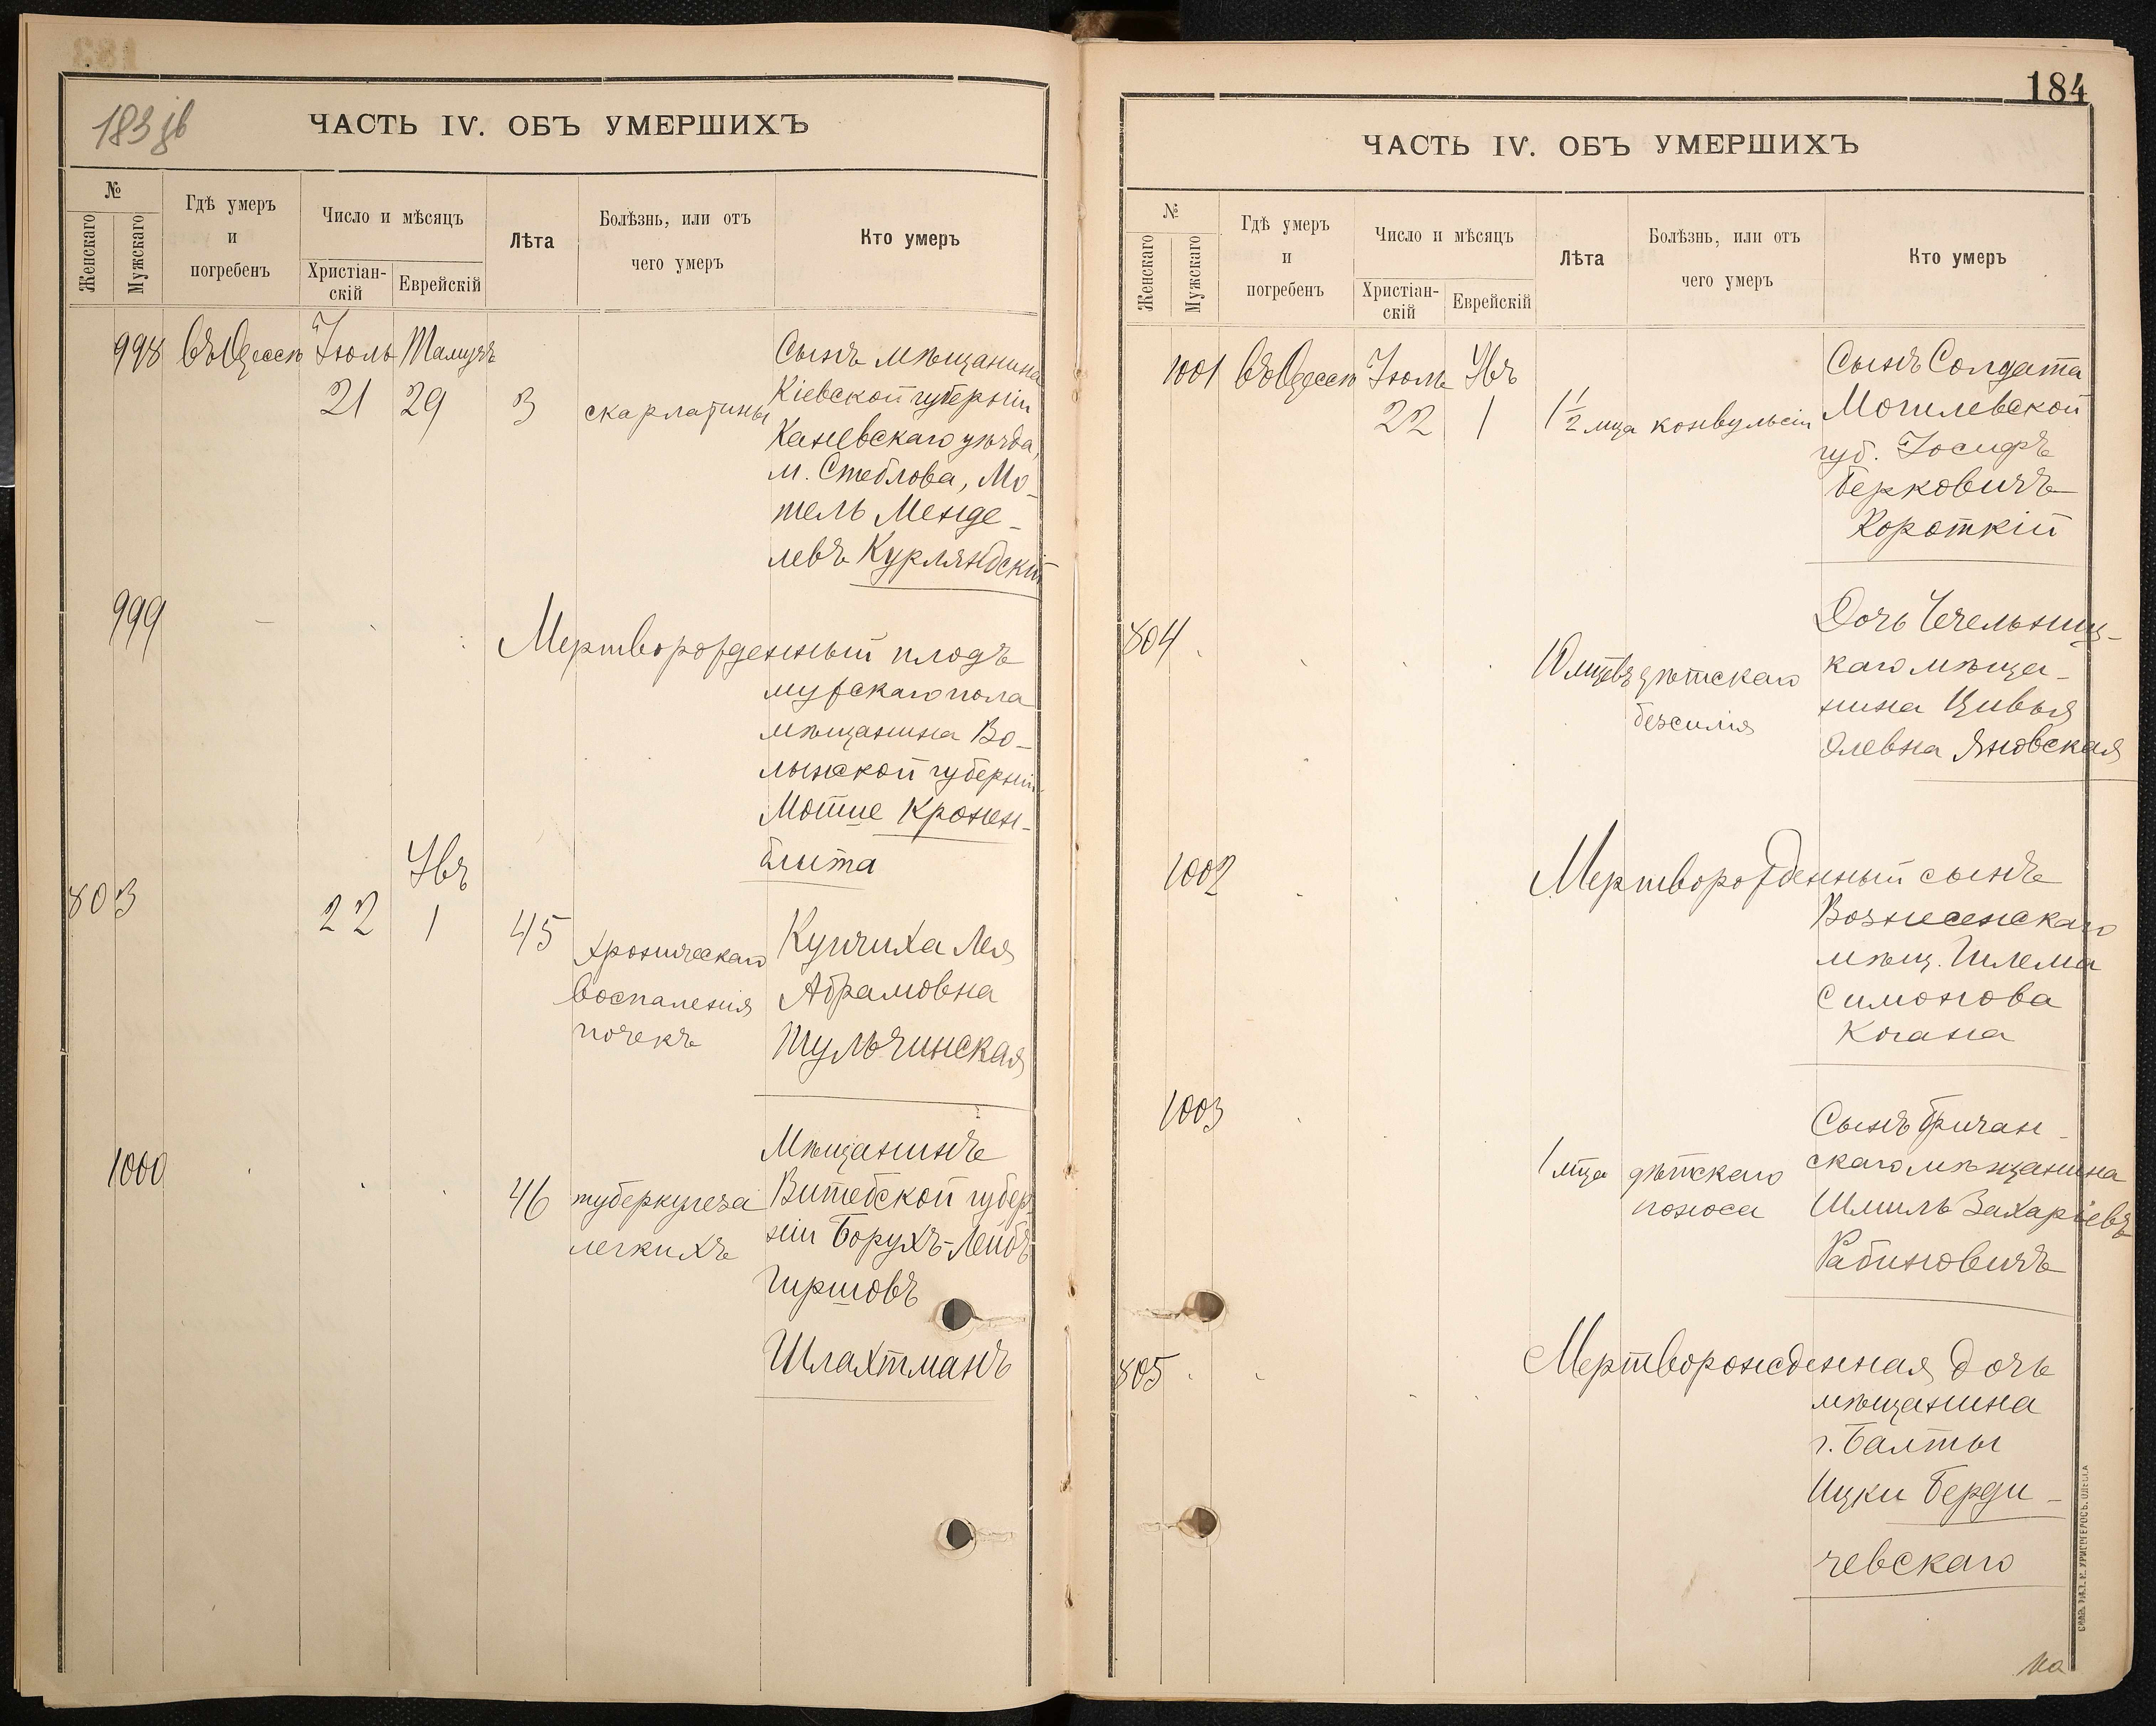 183 зв
ЧАСТЬ IV. ОБЪ УМЕРШИХЪ
№
Женскаго
Мужскаго
Гдѣ умеръ
и
погребенъ
Число и мѣсяцъ
Христіан-
скій
Еврейскій
Лѣта
Болѣзнь, или отъ
чего умеръ
Кто умеръ
998 въ Одессѣ Іюль Тамузъ
21 29 3 скарлатины
Сынъ мѣщанина
Кіевской губерніи
Каневскаго уѣзда,
м. Стеблова, Мо-
тель Менде-
левъ Курляндскій
999
Мертворожденный плодъ
мужскаго пола
мѣщанина Во-
лынской губерніи
Мотие Кронен-
блита
Увъ
803 22 1 45
хроническаго
воспаленія
почекъ
Купчиха Лея
Абрамовна
Тульчинская
1000 46 туберкулеза
легкихъ
Мѣщанинъ
Витебской губер-
ніи Борухъ-Лейбъ
Гиршовъ
Шлахтманъ
184
ЧАСТЬ IV. ОБЪ УМЕРШИХЪ
№
Женскаго
Мужскаго
Гдѣ умеръ
и
погребенъ
Число и мѣсяцъ
Христіан-
скій
Еврейскій
Лѣта
Болѣзнь, или отъ
чего умеръ
Кто умеръ
1001 въ Одессѣ Іюль Увъ
22 1 1½ мца конвульсіи
Сынъ Солдата
Могилевской
губ. Іосифъ
Берковичъ
Короткій
804 10 мцевъ дѣтскаго
безсилія
Дочь Чечельниц-
каго мѣща-
нина Цивья
Элевна Яновская
1002
Мертворожденный сынъ
Вознесенскаго
мѣщ. Шлема
Симонова
Когана
1003
1 мца дѣтскаго
поноса
Сынъ Бричан-
скаго мѣщанина
Шмиль Захаріевъ
Рабиновичъ
805
Мертворожденная дочь
мѣщанина
г. Балты
Ицки Берди-
чевскаго